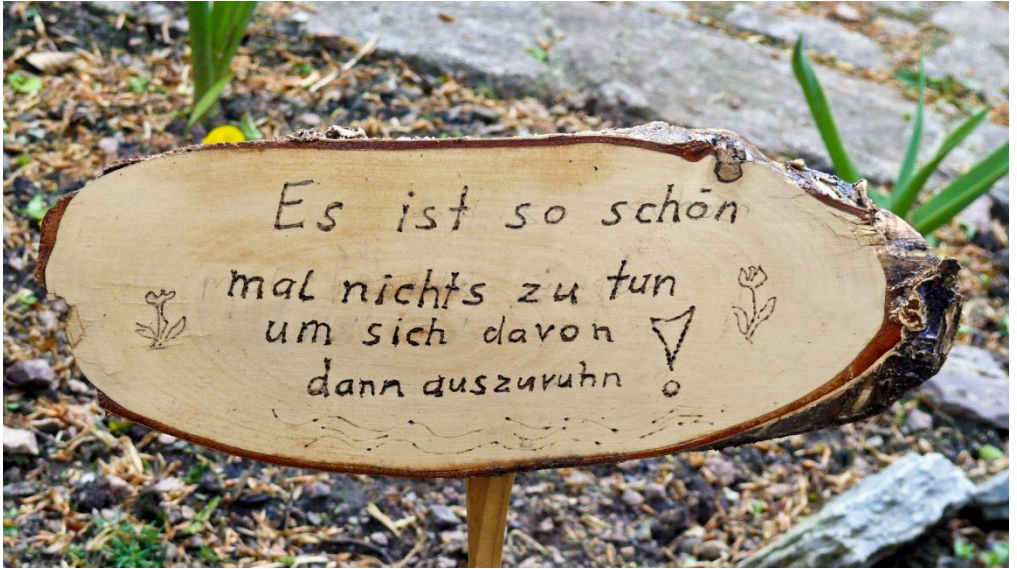 Es ist so schön
mal nichts zu tun
um sich davon
dann auszuruhn !